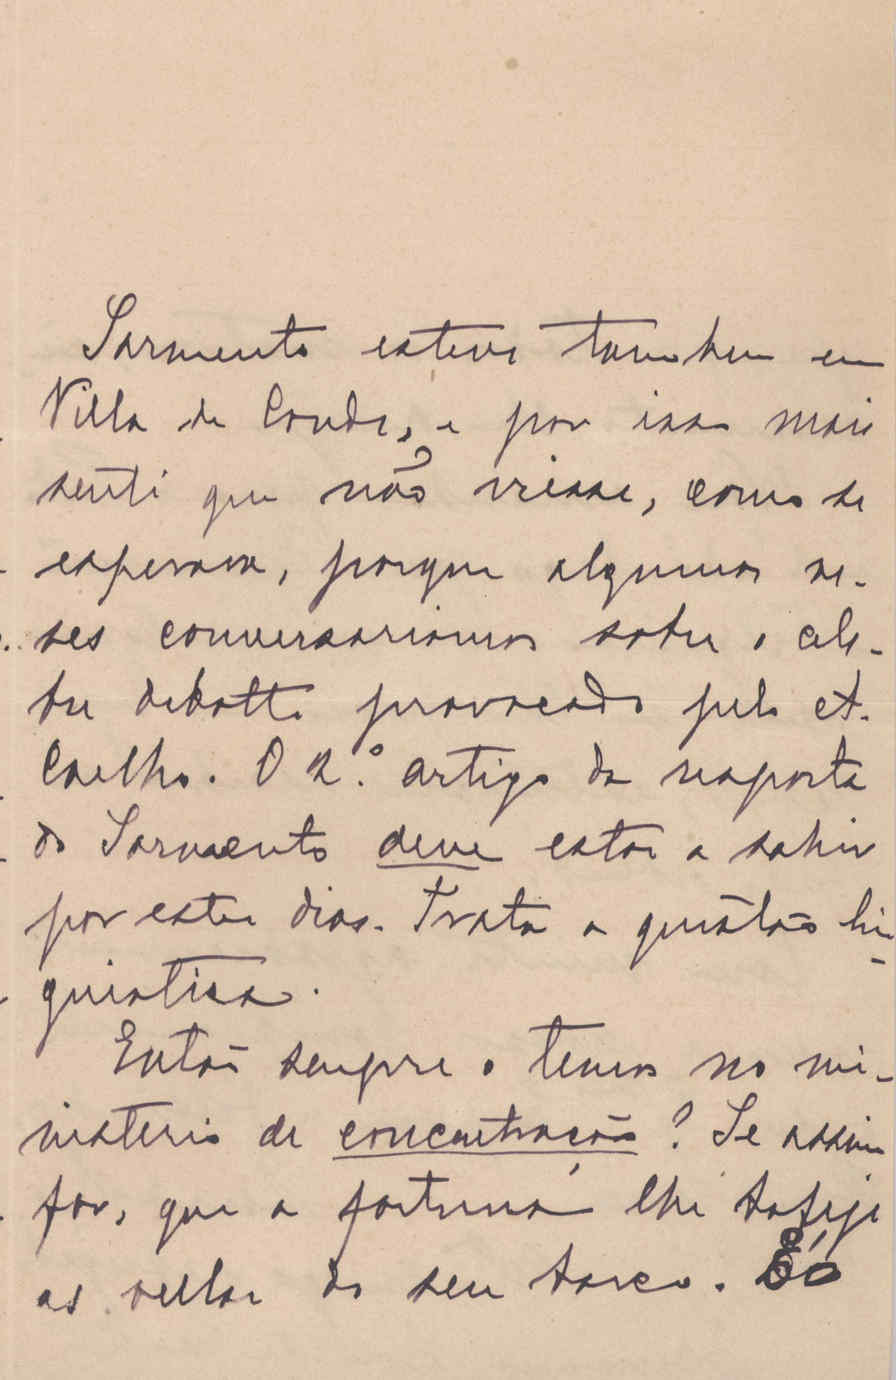 Sarmento esteve tambem em
Villa de Conde, e por isso mais
senti que não viesse, como se
esperava, porque alguma ve-
ses conversariamos sobre o cele-
bre debatte provocado pelo A.
Coelho. O 2.º artigo da resposta
do Sarmento deve estar a sahir
por estes dias. Trata a questão lin-
guistica.
Então sempre o temos no mi-
nisterio de concentração? Se assim
for, que a fortuna lhe bafeje
as vellas do seu barco. Eo